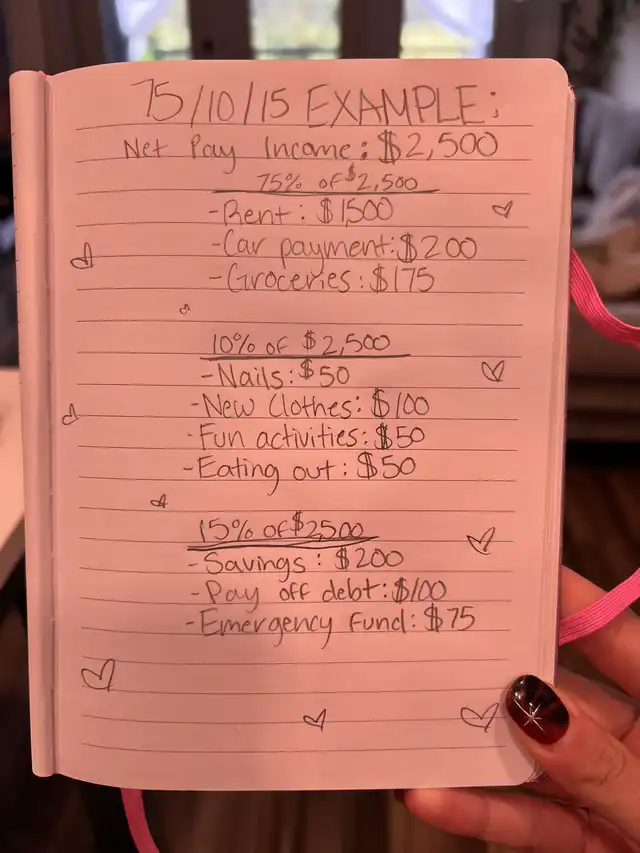 75/10/15 EXAMPLE:
Net Pay Income: $2,500
75% of $2,500
-Rent: $1500
-Car payment: $200
-Groceries: $175
10% of $2,500
-Nails: $50
-New Clothes: $100
-Fun activities: $50
-Eating out: $50
15% of $2,500
-Savings: $200
-Pay off debt: $100
-Emergency Fund: $75